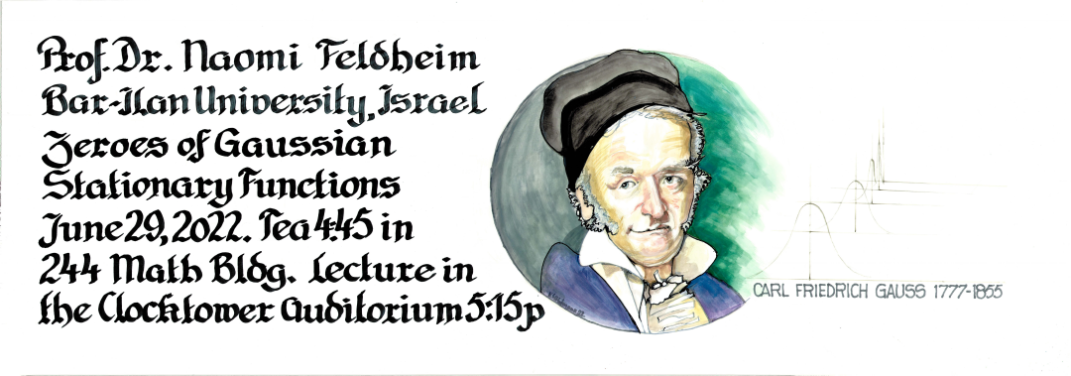 Prof. Dr. Naomi Feldheim
Bar-Ilan University, Israel
Zeroes of Gaussian
Stationary Functions
June 29, 2022. Tea 4:45 in
244 Math Bldg. Lecture in
the Clocktower Auditorium 5:15p
CARL FRIEDRICH GAUSS 1777-1855